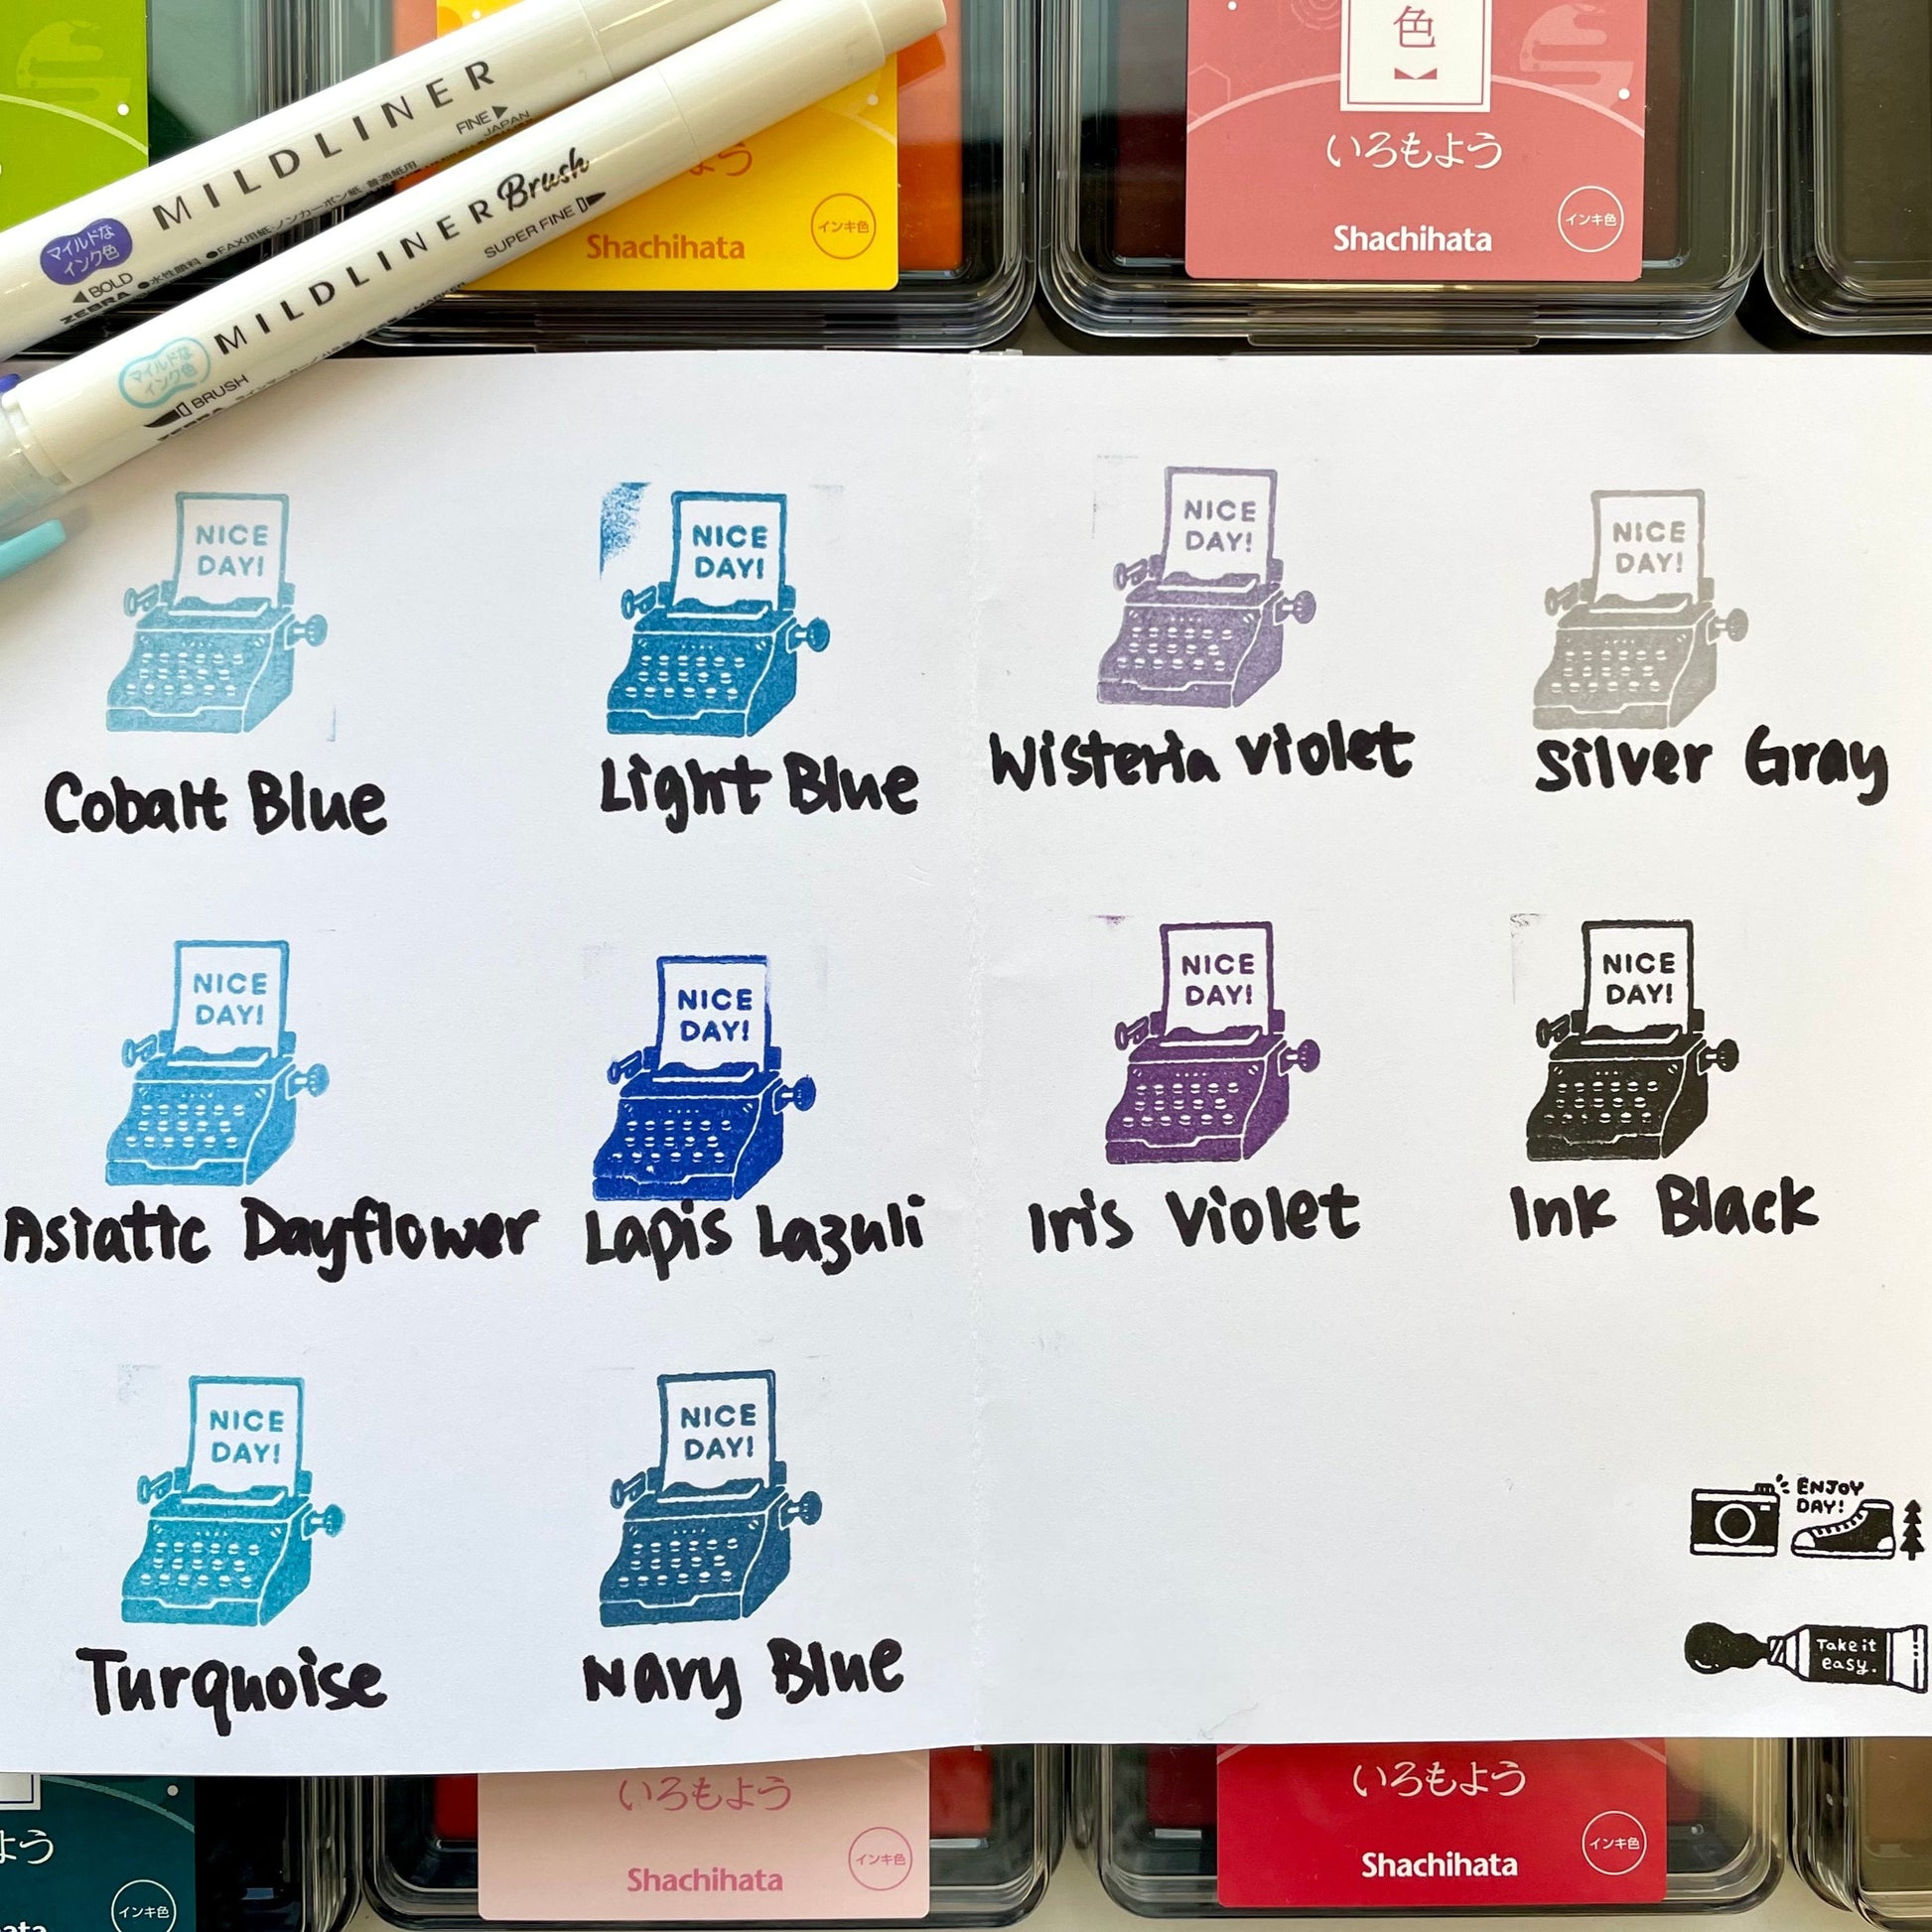 MILDLINER
FINE▶
JAPAN
マイルドな
インク色
◀BOLD
ZEBRA
●水性顔料 ●FAX用紙・ノンカーボン紙 普通紙用
MILDLINER Brush
SUPER FINE
マイルドな
インク色
BRUSH
ZEBRA
よう
Shachihata
インキ色
色
いろもよう
Shachihata
インキ色
NICE
DAY!
Cobalt Blue
NICE
DAY!
Light Blue
NICE
DAY!
Wisteria Violet
NICE
DAY!
Silver Gray
NICE
DAY!
Asiatic Dayflower
NICE
DAY!
Lapis Lazuli
NICE
DAY!
Iris Violet
NICE
DAY!
Ink Black
NICE
DAY!
Turquoise
NICE
DAY!
Navy Blue
ENJOY
DAY!
Take it
easy.
よう
インキ色
いろもよう
Shachihata
インキ色
いろもよう
Shachihata
インキ色